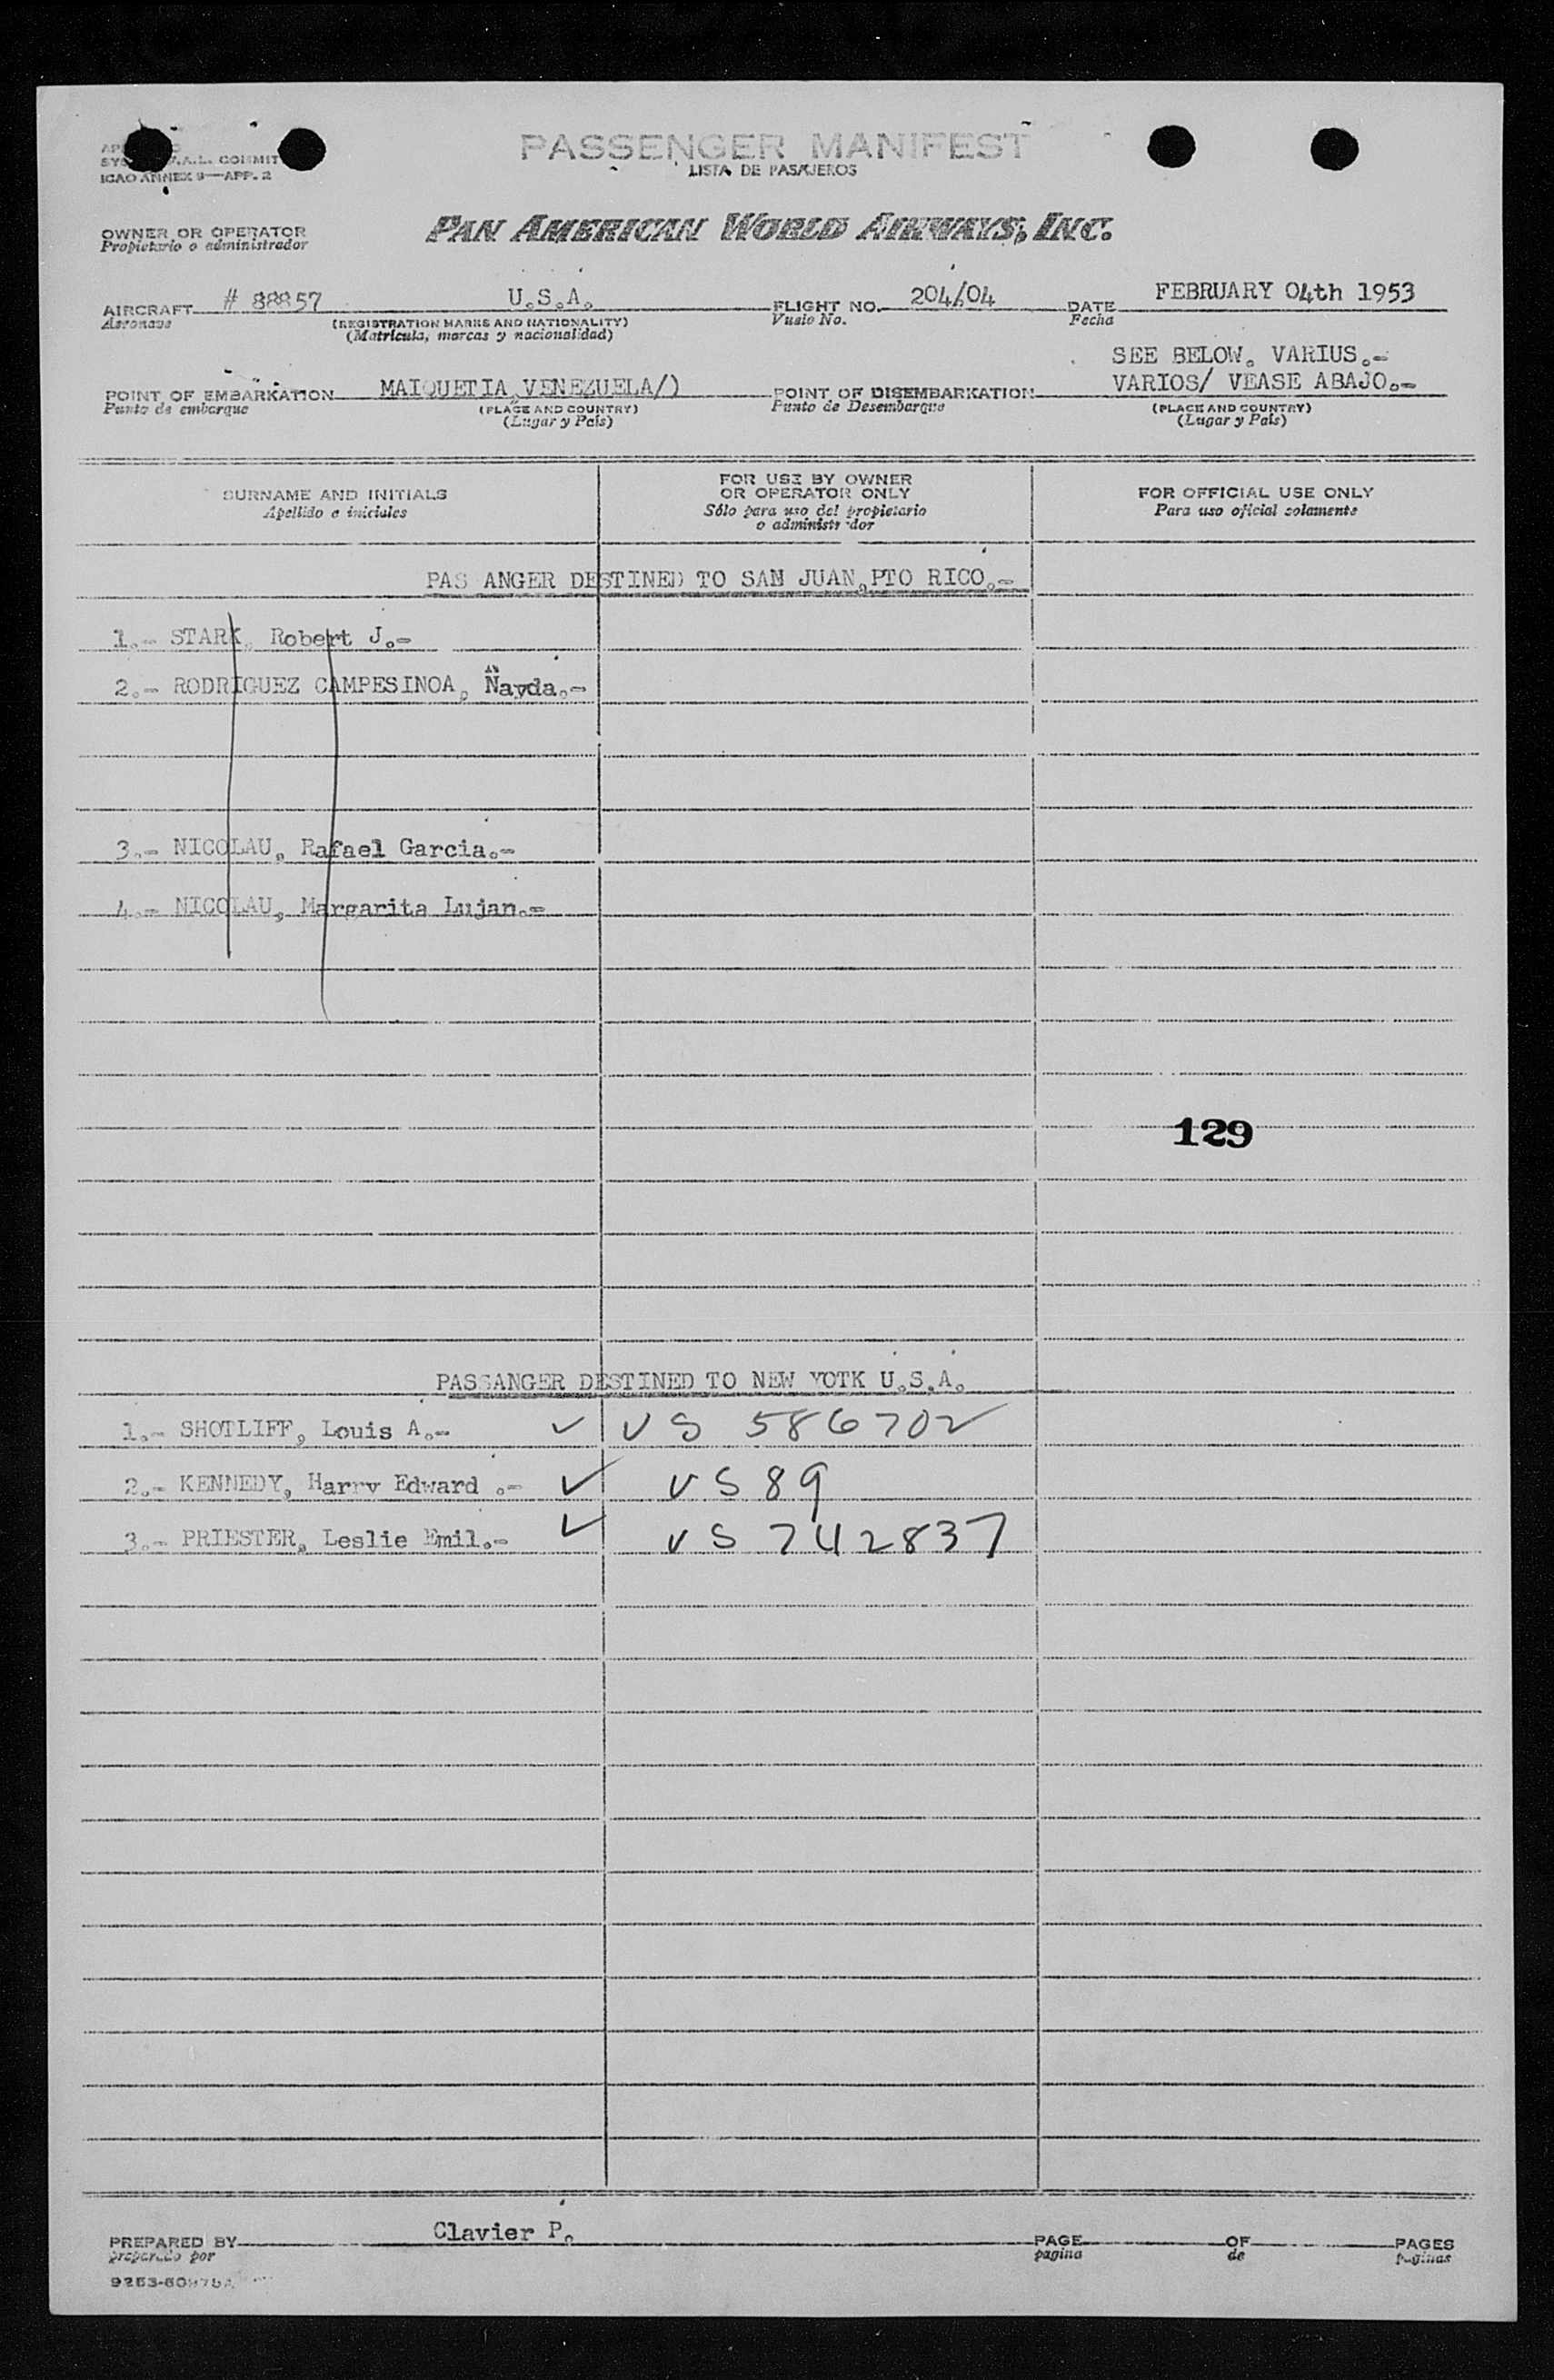 PASSENGER MANIFEST
LISTA DE PASAJEROS
COMMIT
ICAO ANNEX 9—APP. 2
OWNER OR OPERATOR
Propietario o administrador
PAN AMERICAN WORLD AIRWAYS, INC.
AIRCRAFT # 88857 U.S.A. FLIGHT NO. 204/04 DATE FEBRUARY 04th 1953
Aeronave (REGISTRATION MARKS AND NATIONALITY) Vuelo No. Fecha
(Matrícula, marcas y nacionalidad)
SEE BELOW. VARIUS.-
POINT OF EMBARKATION MAIQUETIA, VENEZUELA/) POINT OF DISEMBARKATION VARIOS/ VEASE ABAJO.-
Punto de embarque (PLACE AND COUNTRY) Punto de Desembarque (PLACE AND COUNTRY)
(Lugar y País) (Lugar y País)
SURNAME AND INITIALS FOR USE BY OWNER OR OPERATOR ONLY FOR OFFICIAL USE ONLY
Apellido e iniciales Sólo para uso del propietario o administr dor Para uso oficial solamente
PAS ANGER DESTINED TO SAN JUAN, PTO RICO.-
1.- STARK, Robert J.-
2.- RODRIGUEZ CAMPESINOA, Ñayda.-
3.- NICOLAU, Rafael Garcia.-
4.- NICOLAU, Margarita Lujan.-
129
PASSANGER DESTINED TO NEW YOTK U.S.A.
1.- SHOTLIFF, Louis A.- ✓ VS 586702
2.- KENNEDY, Harry Edward .- ✓ VS 89
3.- PRIESTER, Leslie Emil.- ✓ VS 742837
PREPARED BY Clavier P. PAGE OF PAGES
preparado por pagina de paginas